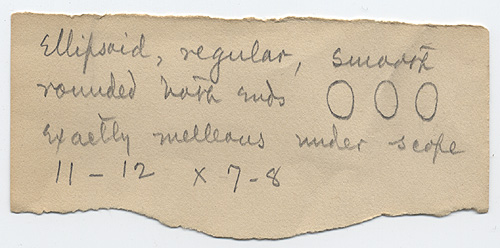 Ellipsoid, regular, smooth
rounded both ends
Exactly melleous under scope
11 - 12 x 7-8